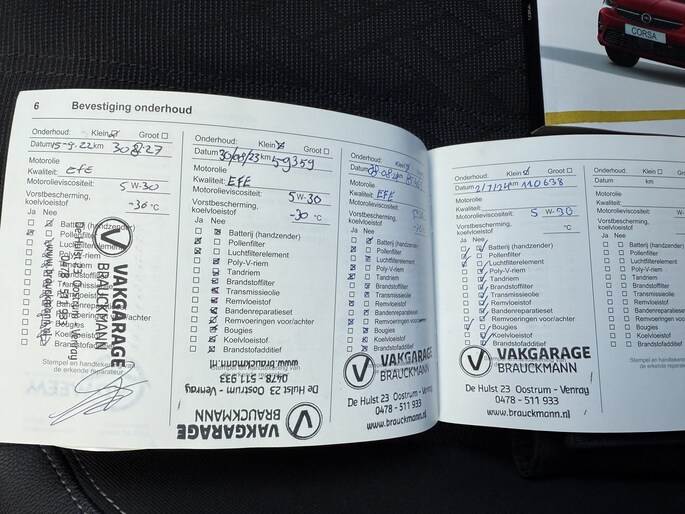 6 Bevestiging onderhoud
Onderhoud: Klein Groot
Datum 15-9-22 km 30827
Motorolie
Kwaliteit: EFE
Motorolieviscositeit: 5 W-30
Vorstbescherming, koelvloeistof -36 °C
Ja Nee
Batterij (handzender)
Pollenfilter
Luchtfilterelement
Poly-V-riem
Tandriem
Brandstoffilter
Transmissieolie
Remvloeistof
Bandenreparatieset
Remvoeringen voor/achter
Bougies
Koelvloeistof
Brandstofadditief
Stempel en handtekening van de erkende reparateur
VAKGARAGE
BRAUCKMANN
De Hulst 23 Oostrum - Venray
0478 - 511 933
www.brauckmann.nl
Onderhoud: Klein Groot
Datum 30/08/23 km 59359
Motorolie
Kwaliteit: EFE
Motorolieviscositeit: 5 W-30
Vorstbescherming, koelvloeistof -30 °C
Ja Nee
Batterij (handzender)
Pollenfilter
Luchtfilterelement
Poly-V-riem
Tandriem
Brandstoffilter
Transmissieolie
Remvloeistof
Bandenreparatieset
Remvoeringen voor/achter
Bougies
Koelvloeistof
Brandstofadditief
VAKGARAGE
BRAUCKMANN
De Hulst 23 Oostrum - Venray
0478 - 511 933
www.brauckmann.nl
Onderhoud: Klein
Datum
Motorolie
Kwaliteit: EFE
Motorolieviscositeit:
Vorstbescherming, koelvloeistof
Ja Nee
Batterij (handzender)
Pollenfilter
Luchtfilterelement
Poly-V-riem
Tandriem
Brandstoffilter
Transmissieolie
Remvloeistof
Bandenreparatieset
Remvoeringen voor
Bougies
Koelvloeistof
Brandstofadditief
VAKGARAGE
BRAUCKMANN
De Hulst 23 Oostrum - Venray
0478 - 511 933
www.brauckmann.nl
Onderhoud: Klein Groot
Datum 2/7/24 km 110638
Motorolie
Kwaliteit:
Motorolieviscositeit: 5 W-30
Vorstbescherming, koelvloeistof °C
Ja Nee
Batterij (handzender)
Pollenfilter
Luchtfilterelement
Poly-V-riem
Tandriem
Brandstoffilter
Transmissieolie
Remvloeistof
Bandenreparatieset
Remvoeringen voor/achter
Bougies
Koelvloeistof
Brandstofadditief
VAKGARAGE
BRAUCKMANN
De Hulst 23 Oostrum - Venray
0478 - 511 933
www.brauckmann.nl
Onderhoud: Klein Groot
Datum km
Motorolie
Kwaliteit:
Motorolieviscositeit: W-
Vorstbescherming, koelvloeistof
Ja Nee
Batterij (handzender)
Pollenfilter
Luchtfilterelement
Poly-V-riem
Tandriem
Brandstoffilter
Transmissieolie
Remvloeistof
Bandenreparatieset
Remvoeringen
Bougies
Koelvloeistof
Brandstofadditief
Stempel en
de erkende reparateur
CORSA
CORSA